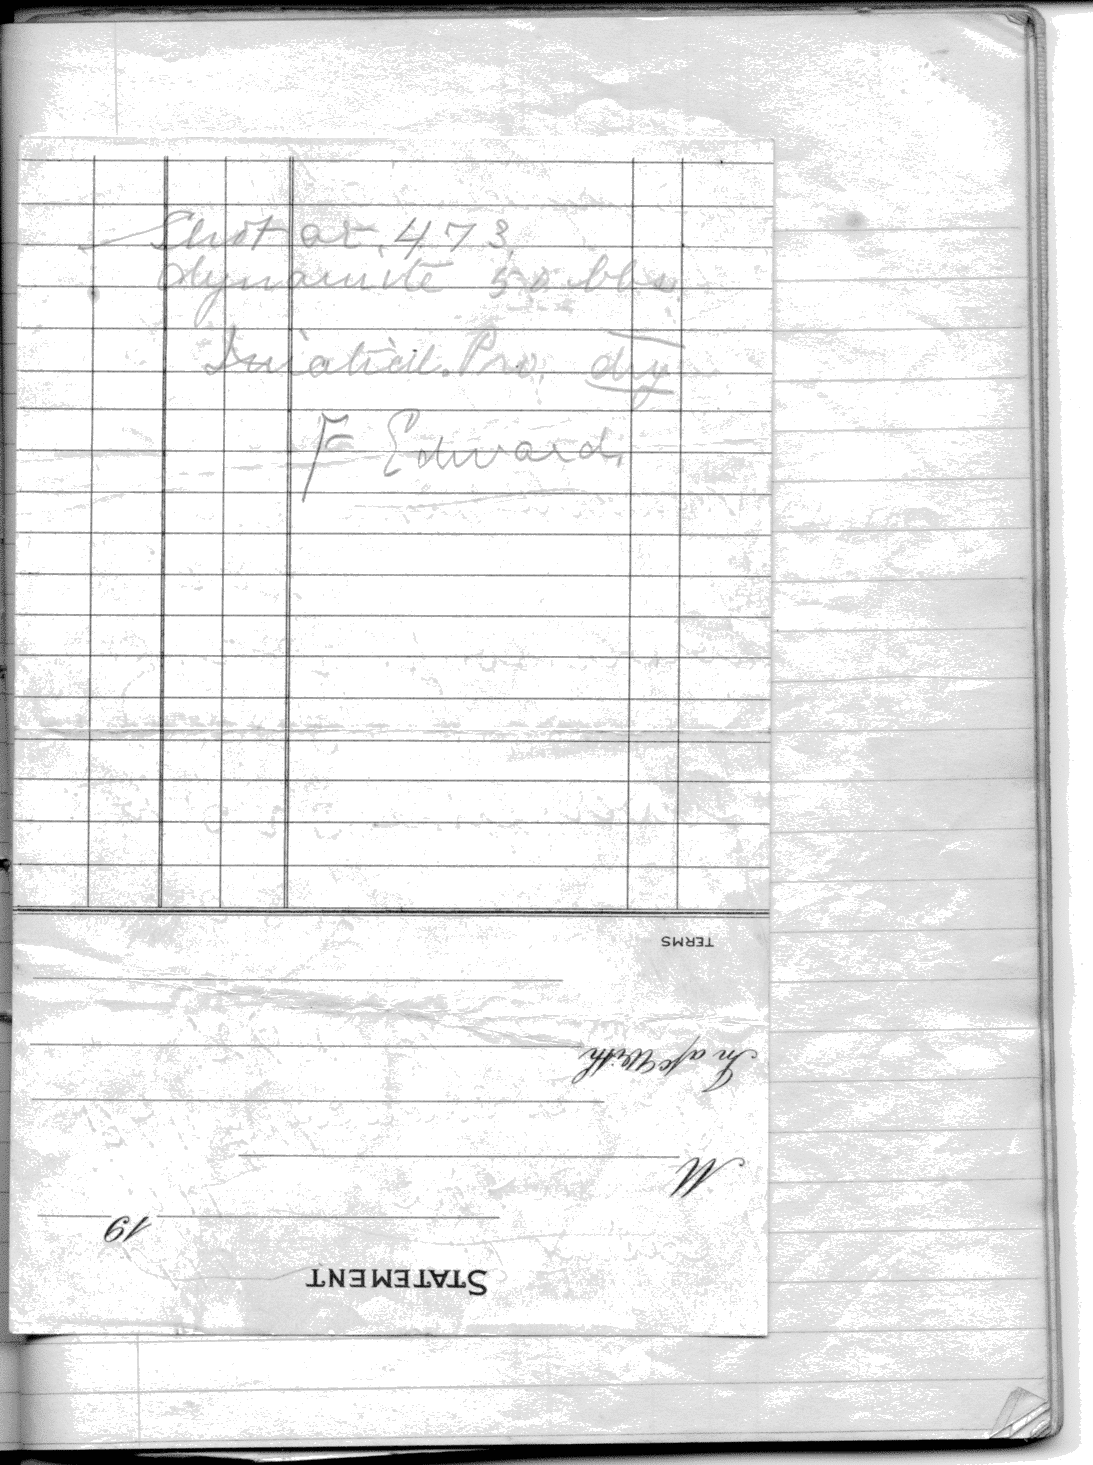 Shot at 473
dynamite 50 lbs
Iniatial. Pro. dry
F Edward.
TERMS
In a/c With
M
19
STATEMENT